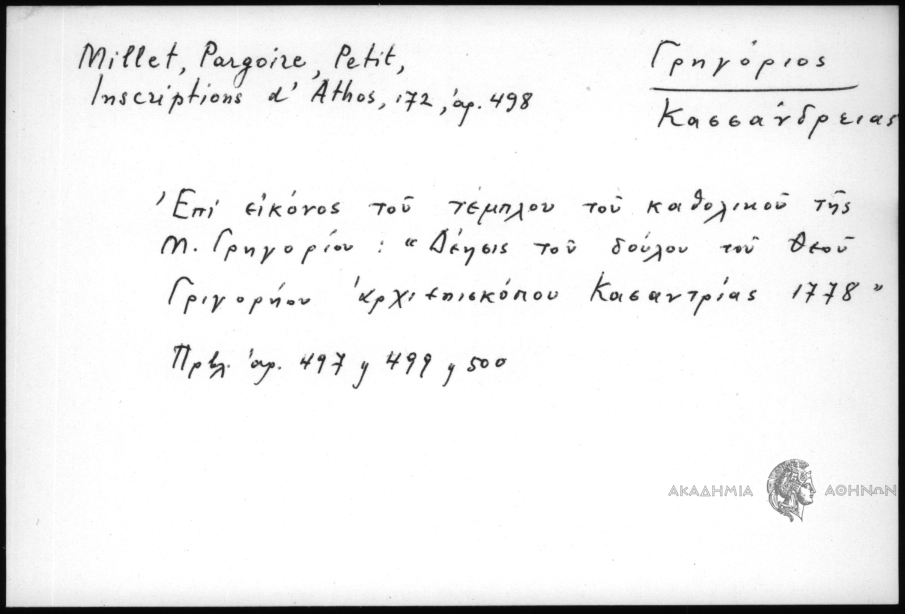 Millet, Pargoire, Petit,
Inscriptions d' Athos, 172, ἀρ. 498
Γρηγόριος
Κασσάνδρειας
Ἐπί εἰκόνος τοῦ τέμπλου τοῦ καθολικοῦ τῆς
Μ. Γρηγορίου : "Δέησις τοῦ δούλου τοῦ Θεοῦ
Γριγορήου ἀρχιεπισκόπου Κασαντρίας 1778"
Πρβλ. ἀρ. 497, 499, 500
ΑΚΑΔΗΜΙΑ ΑΘΗΝΩΝ